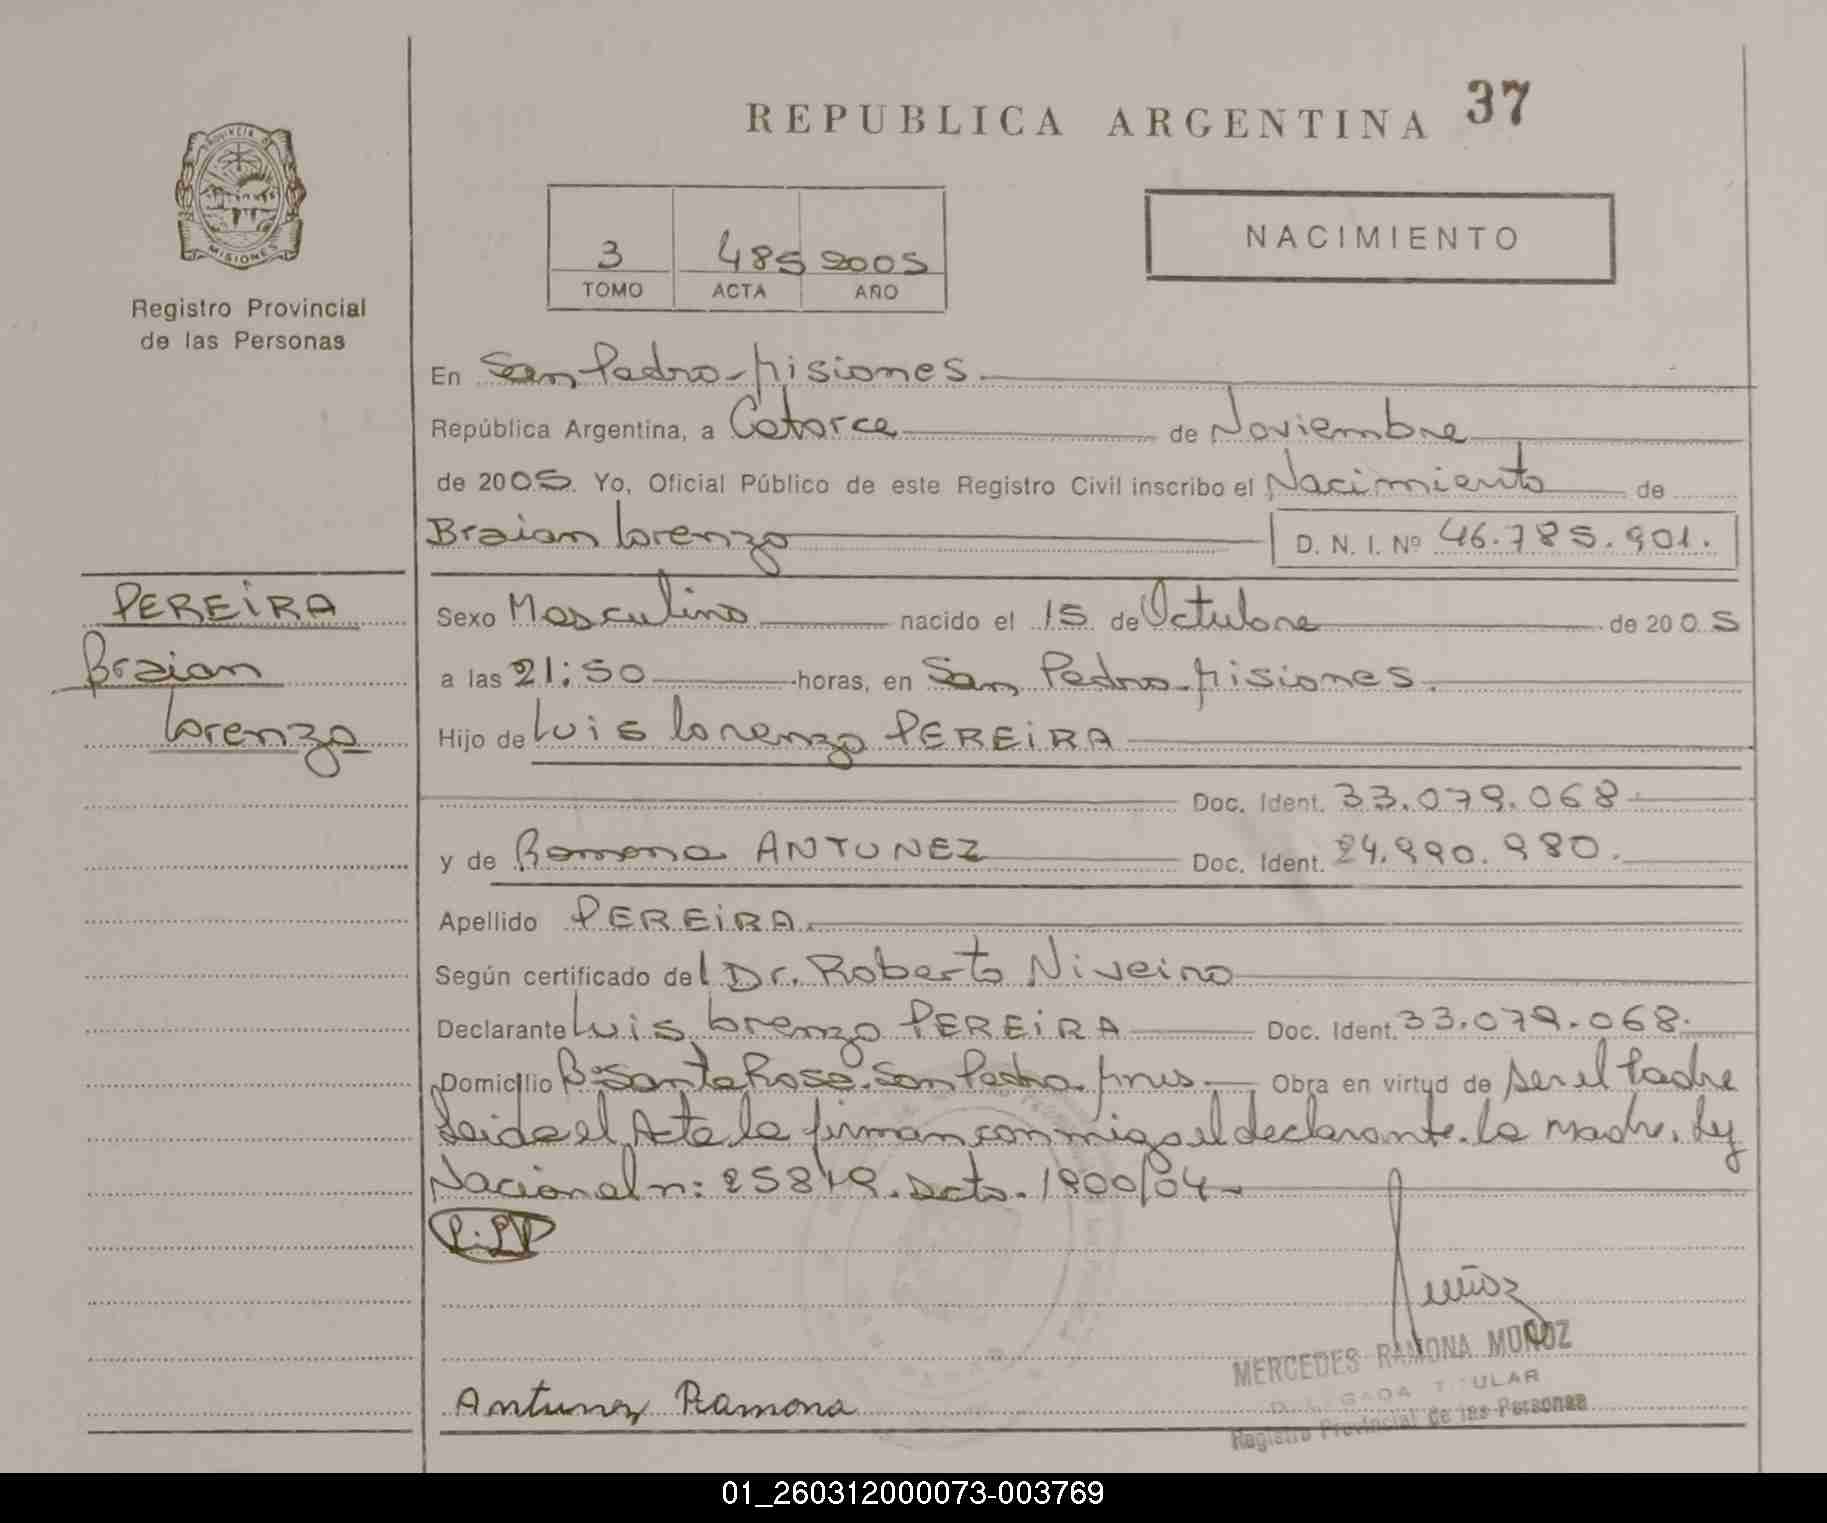 REPUBLICA ARGENTINA 37
PROVINCIA D
MISIONES
Registro Provincial
de las Personas
3 485 2005
TOMO ACTA AÑO
NACIMIENTO
En San Pedro - Misiones
República Argentina, a Catorce de Noviembre
de 2005. Yo, Oficial Público de este Registro Civil inscribo el Nacimiento de
Braian Lorenzo D. N. I. Nº 46.785.901.
PEREiRA
Braian
Lorenzo
Sexo Masculino nacido el 15 de Octubre de 2005
a las 21:50 horas, en San Pedro - Misiones.
Hijo de Luis Lorenzo PEREiRA
Doc. Ident. 33.079.068
y de Ramona ANTUNEZ Doc. Ident. 24.990.980.
Apellido PEREiRA
Según certificado del Dr. Roberto Niveiro
Declarante Luis Lorenzo PEREiRA Doc. Ident. 33.079.068.
Domicilio Bº Santa Rosa. San Pedro. Mnes. Obra en virtud de ser el Padre
Leida el Acta la firman conmigo el declarante. la madre. Ley
Nacional n: 25819. Dcto. 1900/04-
Muñoz
MERCEDES RAMONA MUÑOZ
DELEGADA TITULAR
Registro Provincial de las Personas
Antunez Ramona
01_260312000073-003769